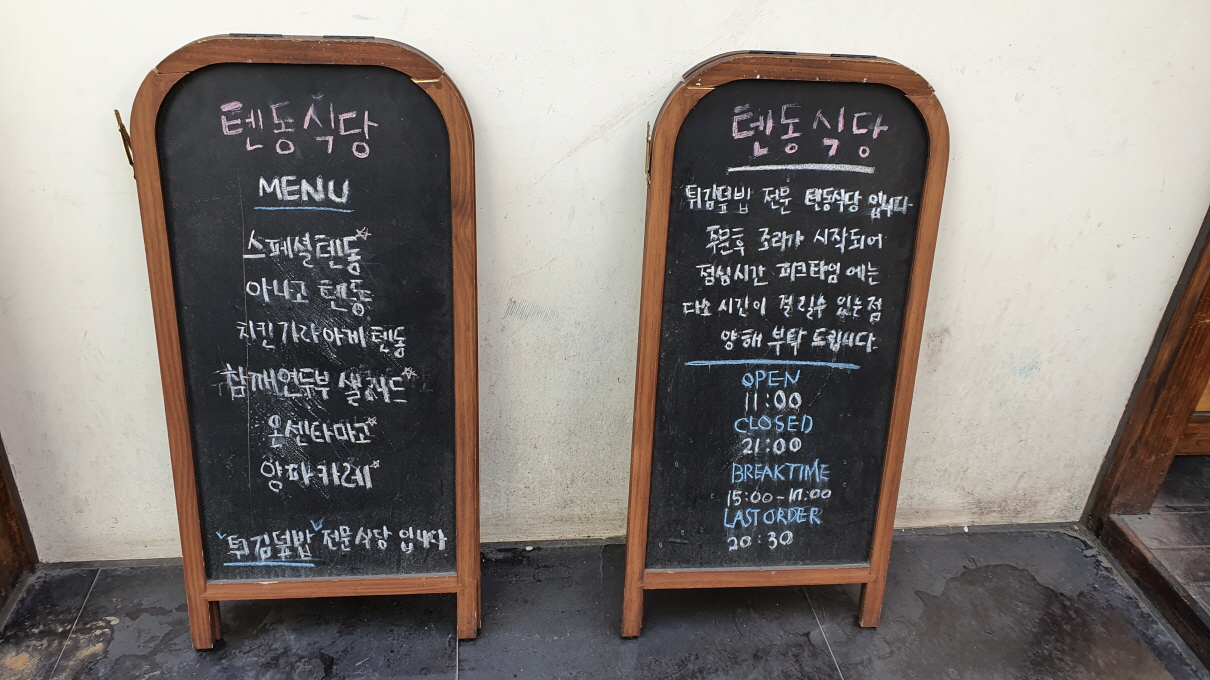 텐동식당
MENU
스페셜텐동
아나고 텐동
치킨가라아게 텐동
참깨연두부 샐러드
온센타마고
양파카레
튀김덮밥 전문식당 입니다
텐동식당
튀김덮밥 전문 텐동식당 입니다
주문후 조리가 시작되어
점심시간 피크타임 에는
다소 시간이 걸릴수 있는점
양해 부탁 드립니다.
OPEN
11:00
CLOSED
21:00
BREAKTIME
15:00-17:00
LAST ORDER
20:30